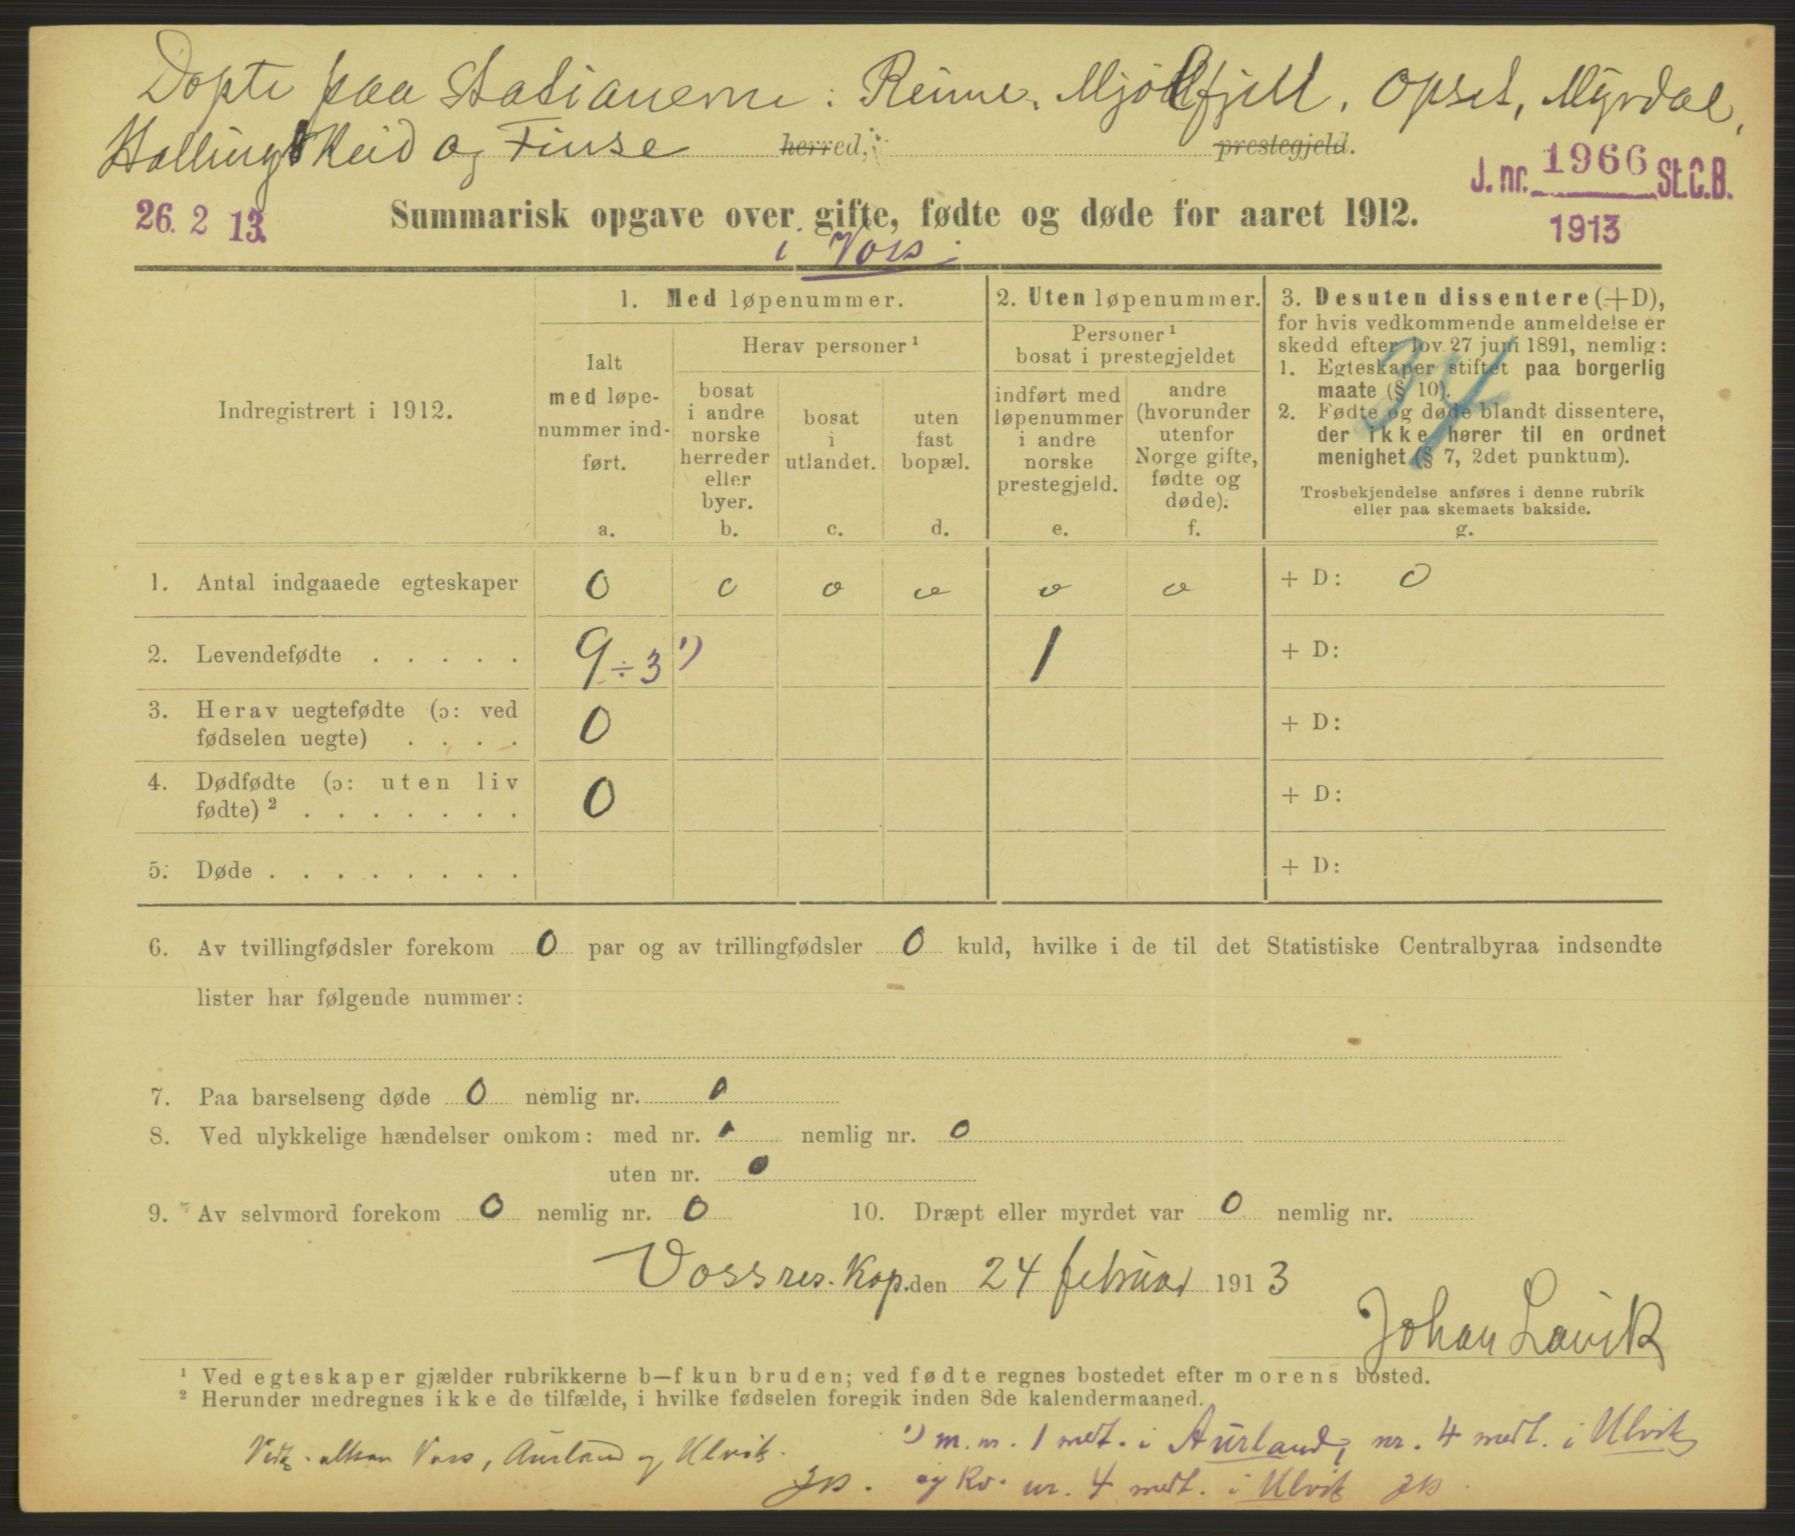 Døpte paa Stationerne: Reime, Mjölfjell, Opset, Myrdal,
Hallingskeid og Finse herred, prestegjeld.
J. nr. 1966 St.C.B.
1913
26. 2 13.
Summarisk opgave over gifte, fødte og døde for aaret 1912.
i Voss.
Indregistrert i 1912.
1. Med løpenummer.
Ialt med løpe-
nummer ind-
ført.
a.
Herav personer ¹
bosat
i andre
norske
herreder
eller
byer.
b.
bosat
i
utlandet.
c.
uten
fast
bopæl.
d.
2. Uten løpenummer.
Personer ¹
bosat i prestegjeldet
indført med
løpenummer
i andre
norske
prestegjeld.
e.
andre
(hvorunder
utenfor
Norge gifte,
fødte og
døde).
f.
3. Desuten dissentere (+D),
for hvis vedkommende anmeldelse er
skedd efter lov 27 juni 1891, nemlig:
1. Egteskaper stiftet paa borgerlig
maate (§ 10).
2. Fødte og døde blandt dissentere,
der ikke hører til en ordnet
menighet (§ 7, 2det punktum).
Trosbekjendelse anføres i denne rubrik
eller paa skemaets bakside.
g.
1. Antal indgaaede egteskaper 0 0 0 0 0 0 + D: 0
2. Levendefødte . . . . . 9 ÷ 3 ¹) 1 + D:
3. Herav uegtefødte (ɔ: ved
fødselen uegte) . . . . 0 + D:
4. Dødfødte (ɔ: uten liv
fødte) ² . . . . . . . 0 + D:
5. Døde . . . . . . . . + D:
6. Av tvillingfødsler forekom 0 par og av trillingfødsler 0 kuld, hvilke i de til det Statistiske Centralbyraa indsendte
lister har følgende nummer:
7. Paa barselseng døde 0 nemlig nr. 0
8. Ved ulykkelige hændelser omkom: med nr. 0 nemlig nr. 0
uten nr. 0
9. Av selvmord forekom 0 nemlig nr. 0 10. Dræpt eller myrdet var 0 nemlig nr.
Voss res. Kap. den 24 februar 1913
Johan Lavik
¹ Ved egteskaper gjælder rubrikkerne b—f kun bruden; ved fødte regnes bostedet efter morens bosted.
² Herunder medregnes ikke de tilfælde, i hvilke fødselen foregik inden 8de kalendermaaned.
Voss, Aurland og Ulvik.
¹) m. nr. 1 medt. i Aurland, nr. 4 medt. i Ulvik
og Kv. nr. 4 medt. i Ulvik